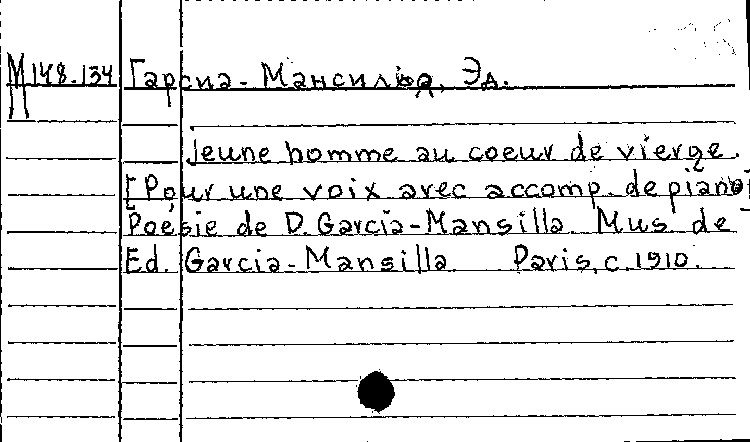 М 148.134 Гарсиа-Мансилья, Эд.
Jeune homme au coeur de vierge.
[Pour une voix avec accomp. de piano]
Poésie de D. Garcia-Mansilla. Mus. de
Ed. Garcia-Mansilla. Paris, c. 1910.